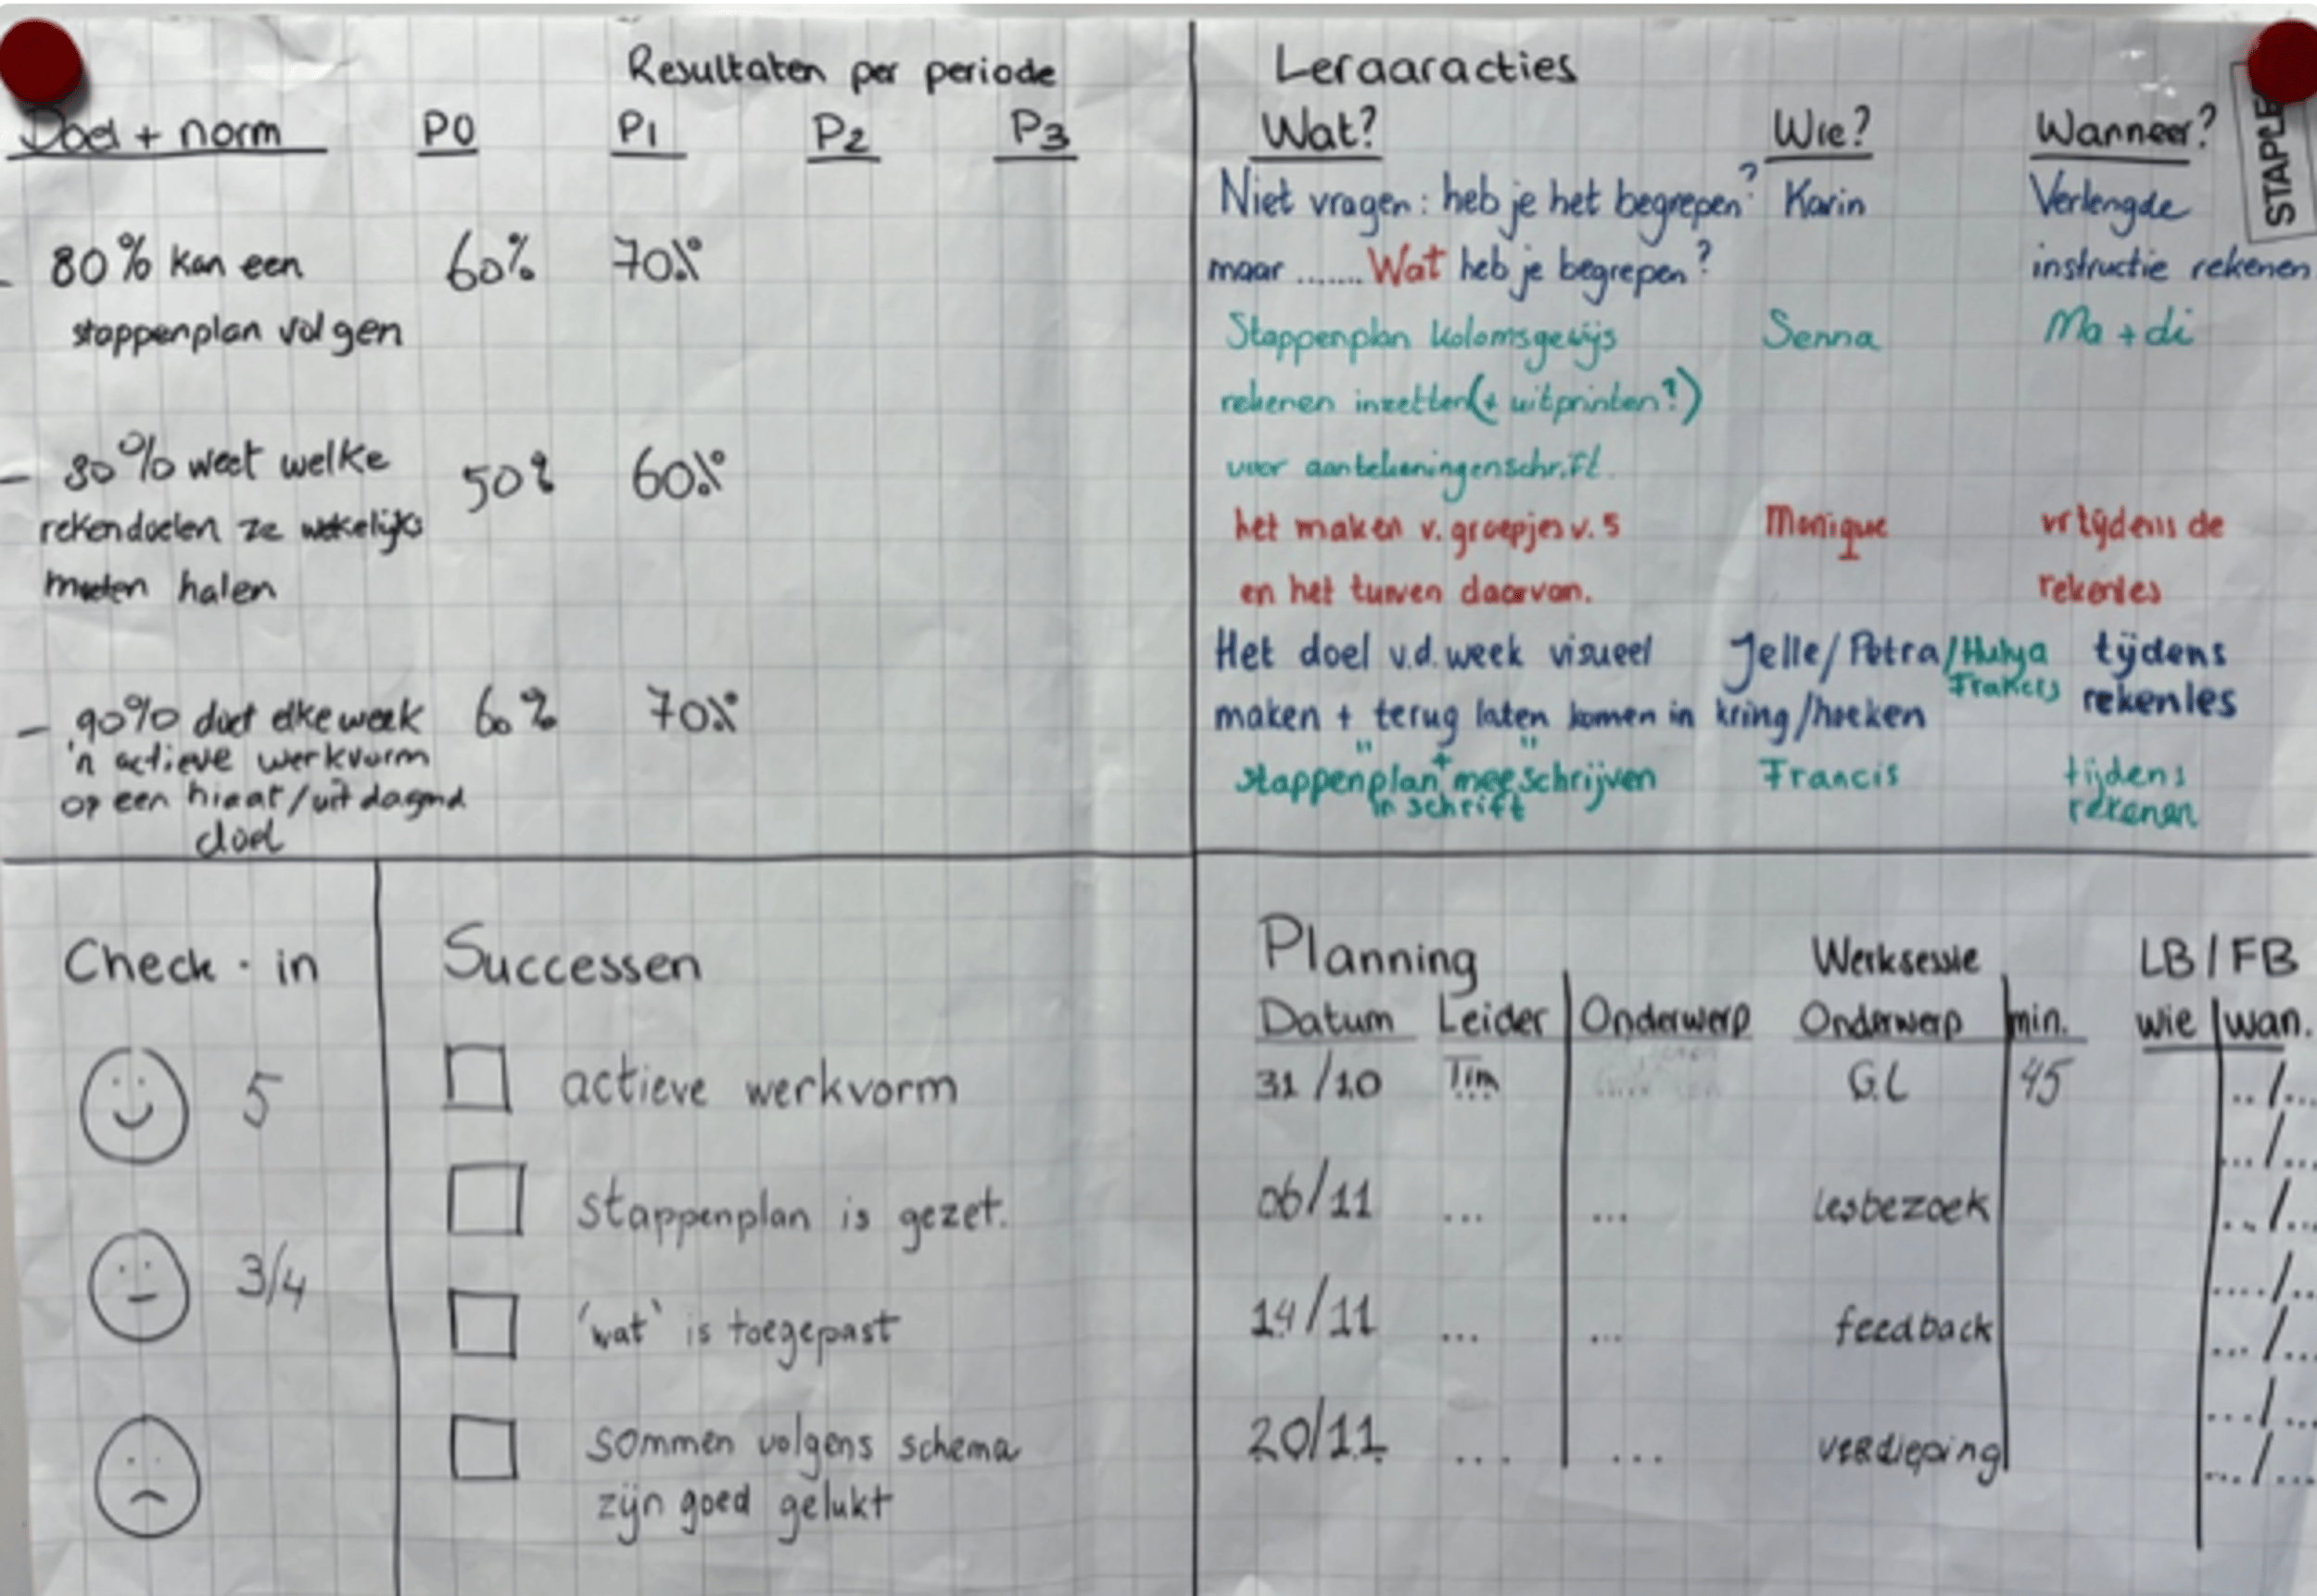 Resultaten per periode
Doel + norm P0 P1 P2 P3
- 80% kan een 60% 70%
stappenplan volgen
- 80% weet welke 50% 60%
rekendoelen ze wekelijks
moeten halen
- 90% doet elke week 60% 70%
'n actieve werkvorm
op een hiaat/uitdagend
doel
Leraaracties
Wat? Wie? Wanneer?
Niet vragen: heb je het begrepen? Karin Verlengde
maar ....... Wat heb je begrepen? instructie rekenen
Stappenplan kolomsgewijs Senna Ma + di
rekenen inzetten (+ uitprinten?)
voor aantekeningenschrift.
het maken v. groepjes v. 5 Monique vr tijdens de
en het turven daarvan. rekenles
Het doel v.d. week visueel Jelle/Petra/Hulya tijdens
maken + terug laten komen in kring/hoeken rekenles
stappenplan + meeschrijven Francis tijdens
in schrift rekenen
STAPLE
Check-in
5
3/4
Successen
actieve werkvorm
stappenplan is gezet.
'wat' is toegepast
sommen volgens schema
zijn goed gelukt
Planning Werksessie LB/FB
Datum Leider Onderwerp Onderwerp min. wie wan.
31/10 Tim G.L 45 ../...
.../...
06/11 ... ... lesbezoek .../...
..../...
14/11 ... ... feedback .../...
.../...
20/11 ... ... verdieping .../...